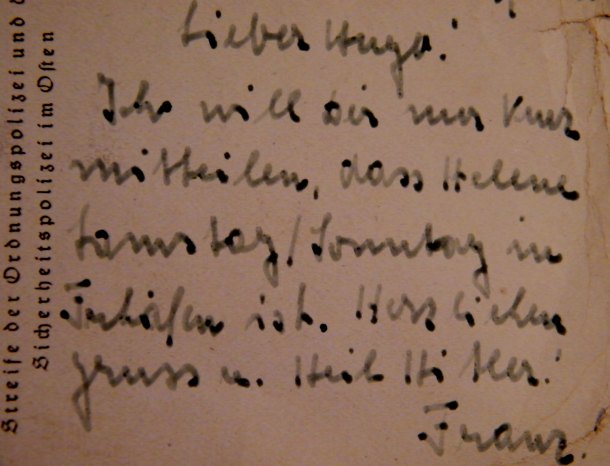 Streife der Ordnungspolizei und
Sicherheitspolizei im Osten
Lieber Hugo!
Ich will dir nur kurz
mitteilen, dass Helene
Samstag/Sonntag in
ist. Herzlichen
Gruss u. Heil Hitler!
Franz!